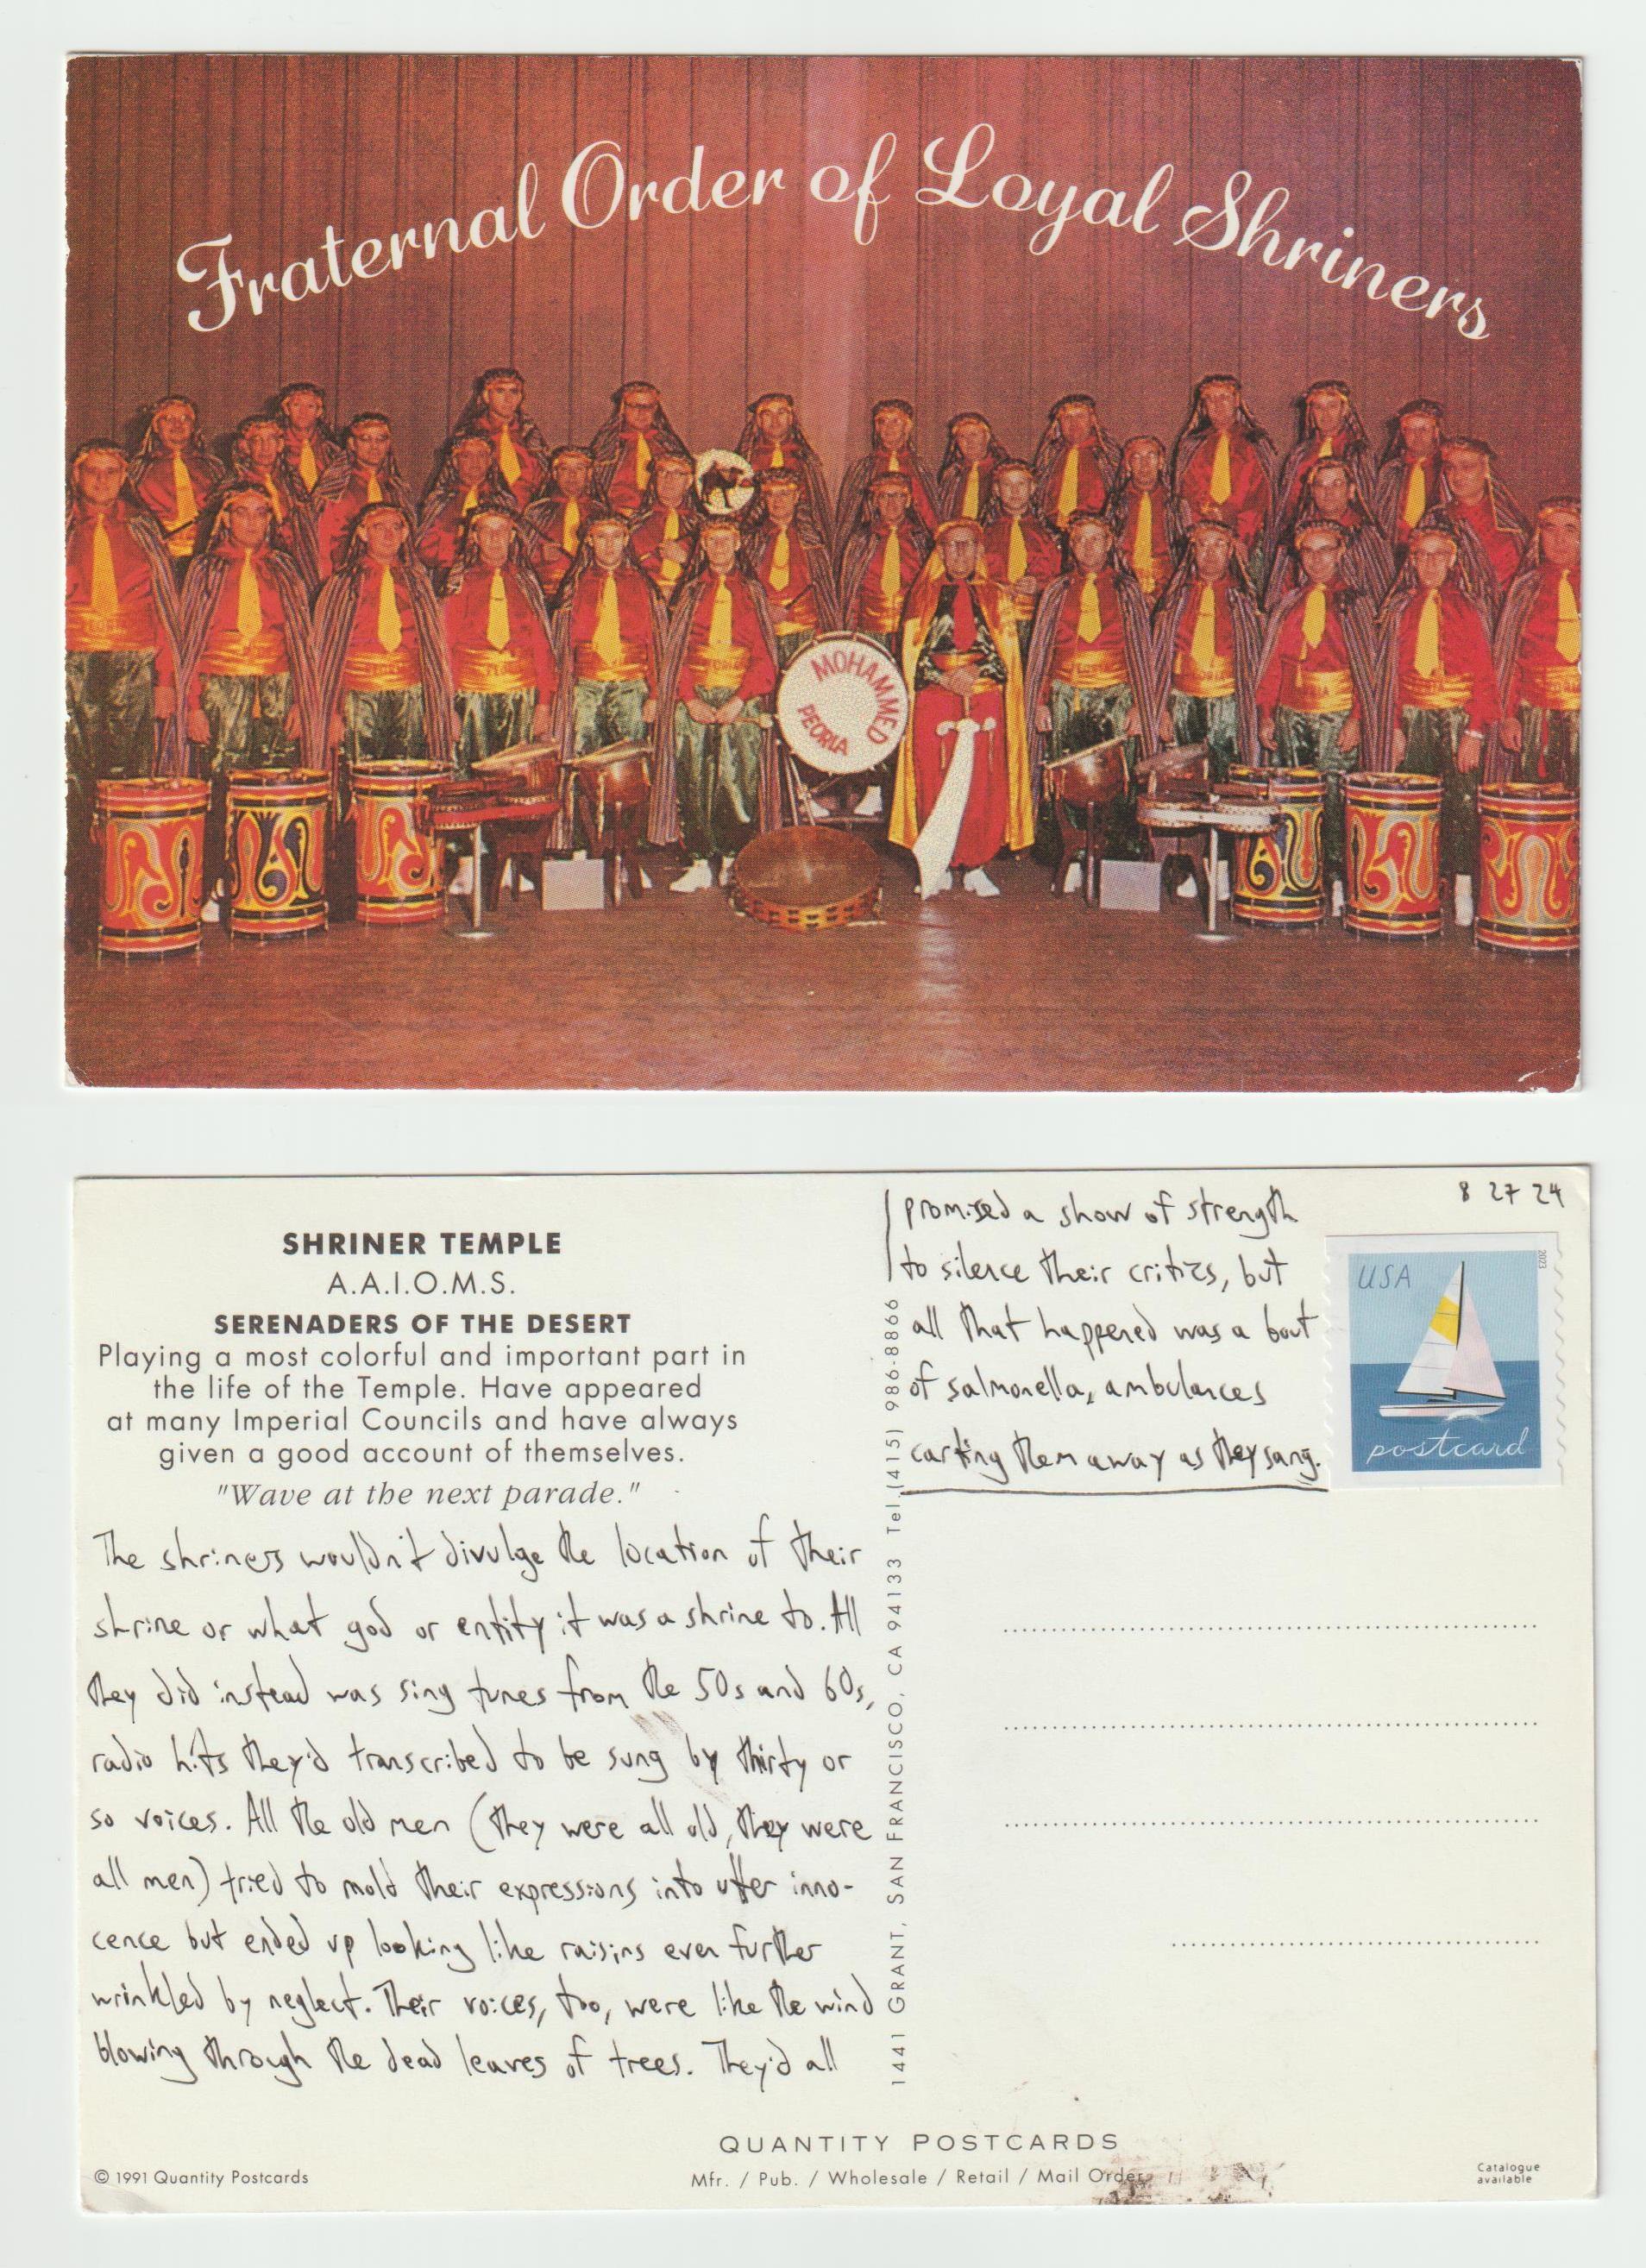 Fraternal Order of Loyal Shriners
MOHAMMED
PEORIA
SHRINER TEMPLE
A.A.I.O.M.S.
SERENADERS OF THE DESERT
Playing a most colorful and important part in
the life of the Temple. Have appeared
at many Imperial Councils and have always
given a good account of themselves.
"Wave at the next parade."
The shriners wouldn't divulge the location of their
shrine or what god or entity it was a shrine to. All
they did instead was sing tunes from the 50s and 60s,
radio hits they'd transcribed to be sung by thirty or
so voices. All the old men (they were all old, they were
all men) tried to mold their expressions into utter inno-
cence but ended up looking like raisins even further
wrinkled by neglect. Their voices, too, were like the wind
blowing through the dead leaves of trees. They'd all
promised a show of strength
to silence their critics, but
all that happened was a bout
of salmonella, ambulances
carting them away as they sang.
8 27 24
USA
2023
postcard
1441 GRANT, SAN FRANCISCO, CA 94133 Tel.(415) 986-8866
QUANTITY POSTCARDS
Mfr. / Pub. / Wholesale / Retail / Mail Order
© 1991 Quantity Postcards
Catalogue
available